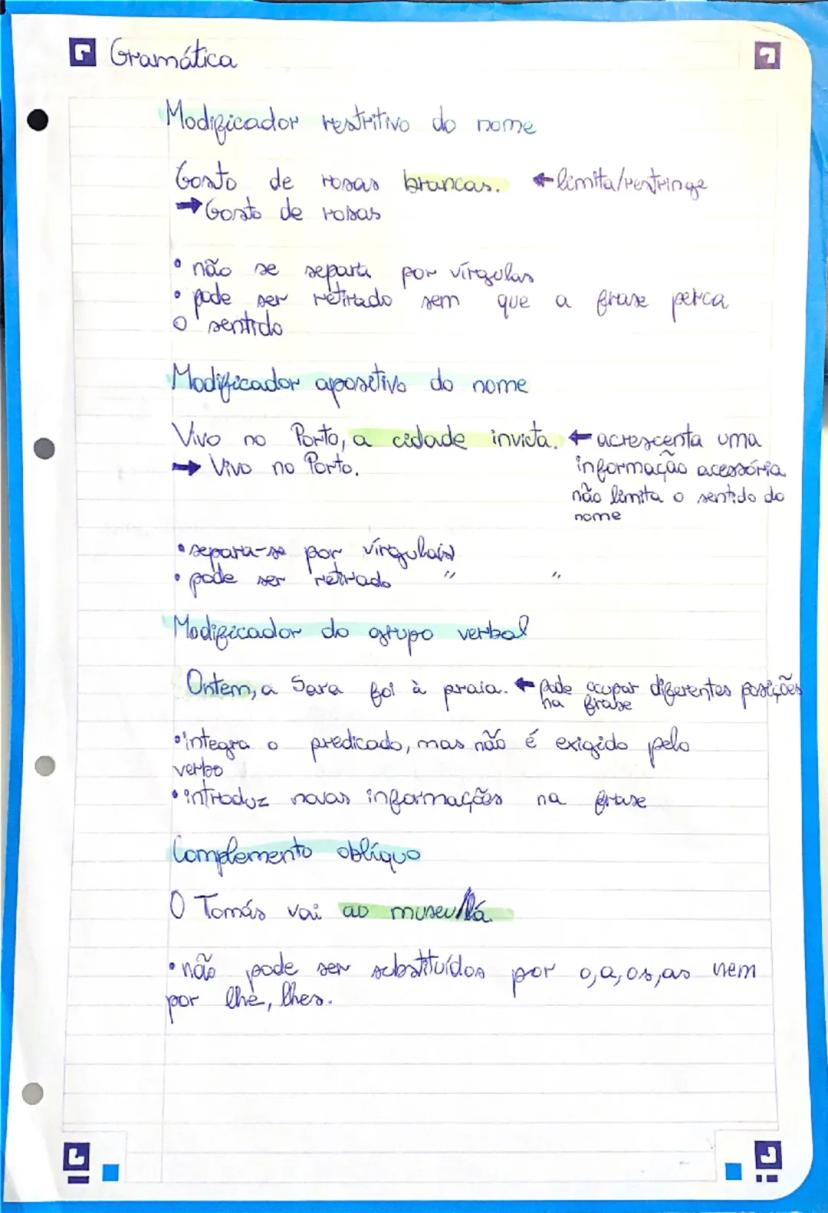 Gramática
Modificador restritivo do nome
Gosto de rosas brancas. ← limita/restringe
→ Gosto de rosas
• não se separa por vírgulas
• pode ser retirado sem que a frase perca
o sentido
Modificador apositivo do nome
Vivo no Porto, a cidade invicta. ← acrescenta uma
→ Vivo no Porto. informação acessória
não limita o sentido do
nome
• separa-se por vírgula(s)
• pode ser retirado " "
Modificador do grupo verbal
Ontem, a Sara foi à praia. ← Pode ocupar diferentes posições
na frase
• integra o predicado, mas não é exigido pelo
verbo
• introduz novas informações na frase
Complemento oblíquo
O Tomás vai ao museu/lá.
• não pode ser substituídos por o,a,os,as nem
por lhe, lhes.